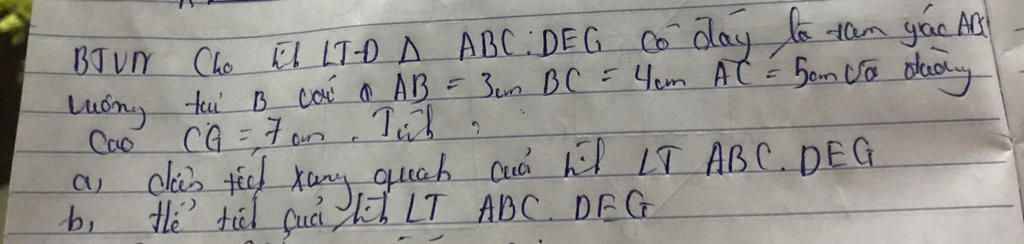 BTVN Cho hìh LT-Đ Δ ABC.DEG có đáy là tam giác ABC
vuông tại B có AB = 3cm BC = 4cm AC = 5cm và đường
cao CG = 7cm. Tíh:
a, diện tích xung quah của hìh LT ABC.DEG
b, thể tích của hìh LT ABC.DEG